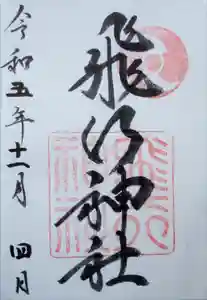 飛行神社
令和五年十一月四日